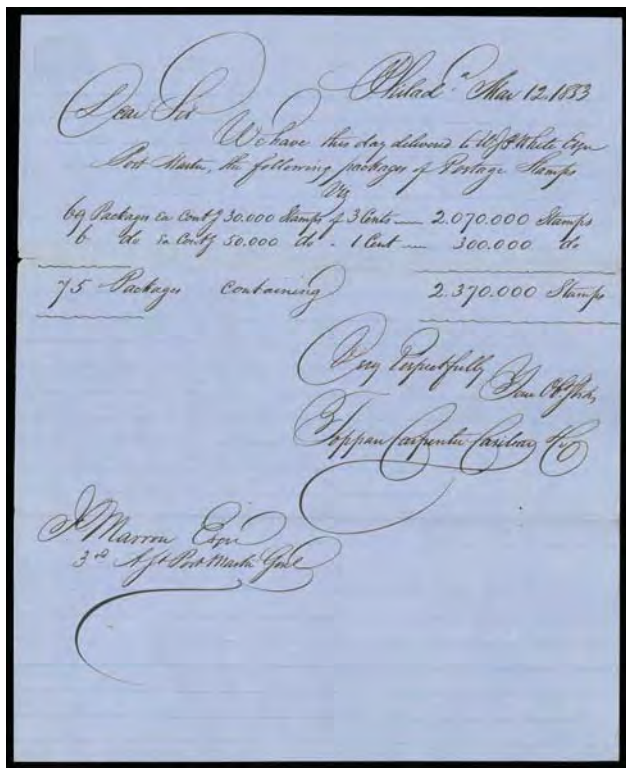 Philad.ª Mar 12. 1853
Dear Sir
We have this day delivered to W J P White Esqr
Post Master, the following packages of Postage Stamps
Viz
69 Packages ea Contg 30.000 Stamps of 3 Cents 2.070.000 Stamps
6 do ea Contg 50.000 do . 1 Cent 300.000 do
75 Packages containing 2.370.000 Stamps
Very Respectfully
Your Obt Svts
Toppan Carpenter Casilear & Co
J Marron Esqr
3rd Asst Post Master Genl